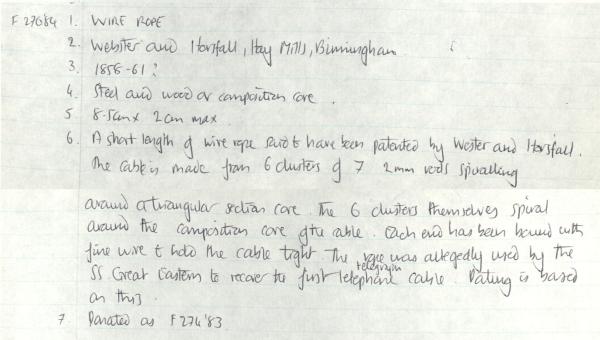 F 276'84 1. WIRE ROPE
2. Webster and Horsfall, Hay Mills, Birmingham
3. 1858-61?
4. Steel and wood or composition core.
5 8.5cm x 2cm max.
6. A short length of wire rope said t have been patented by Wester and Horsfall.
The cable is made from 6 clusters of 7 2mm rods spiralling
around a triangular section core. The 6 clusters themselves spiral
around the composition core of the cable. Each end has been bound with
fine wire t hold the cable tight. The rope was allegedly used by the
SS Great Eastern to recover the first telephone telegraph cable. Dating is based
on this.
7. Donated as F 274'83